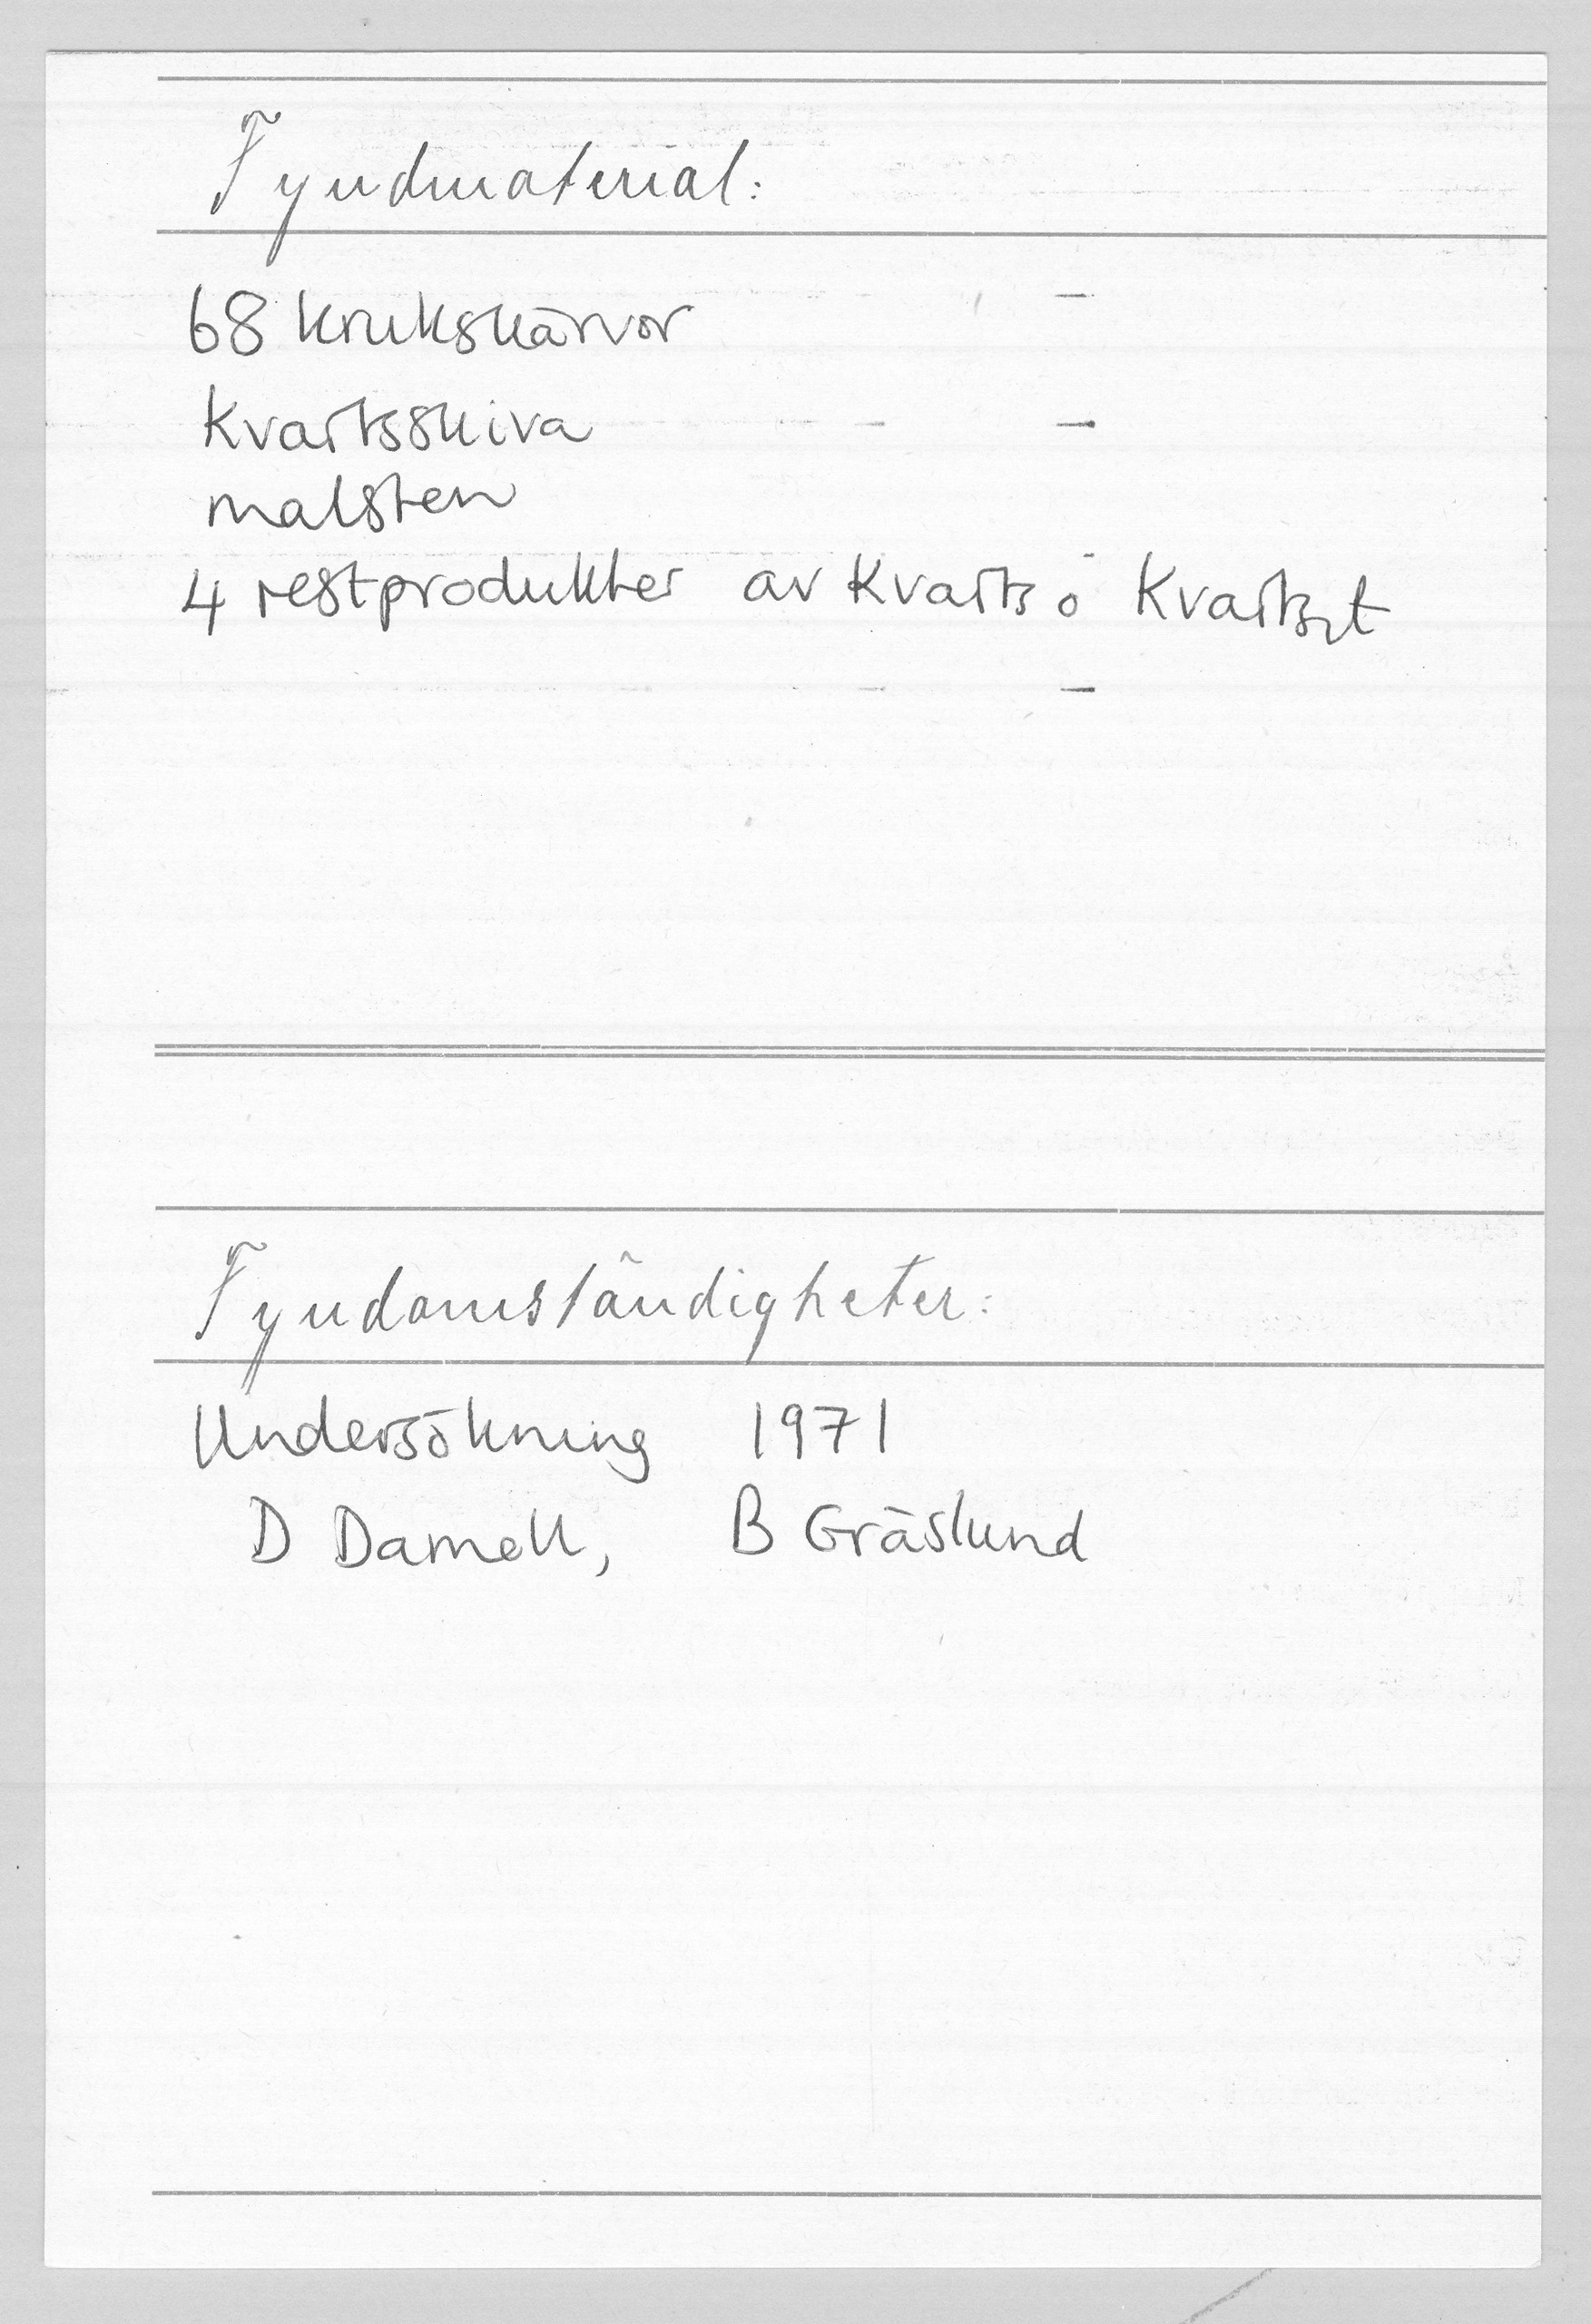 Fyndmaterial:
68 krukskärvor
Kvartsskiva
malsten
4 restprodukter av kvarts o kvartsit
Fyndomständigheter:
Undersökning 1971
D Damell, B Gräslund